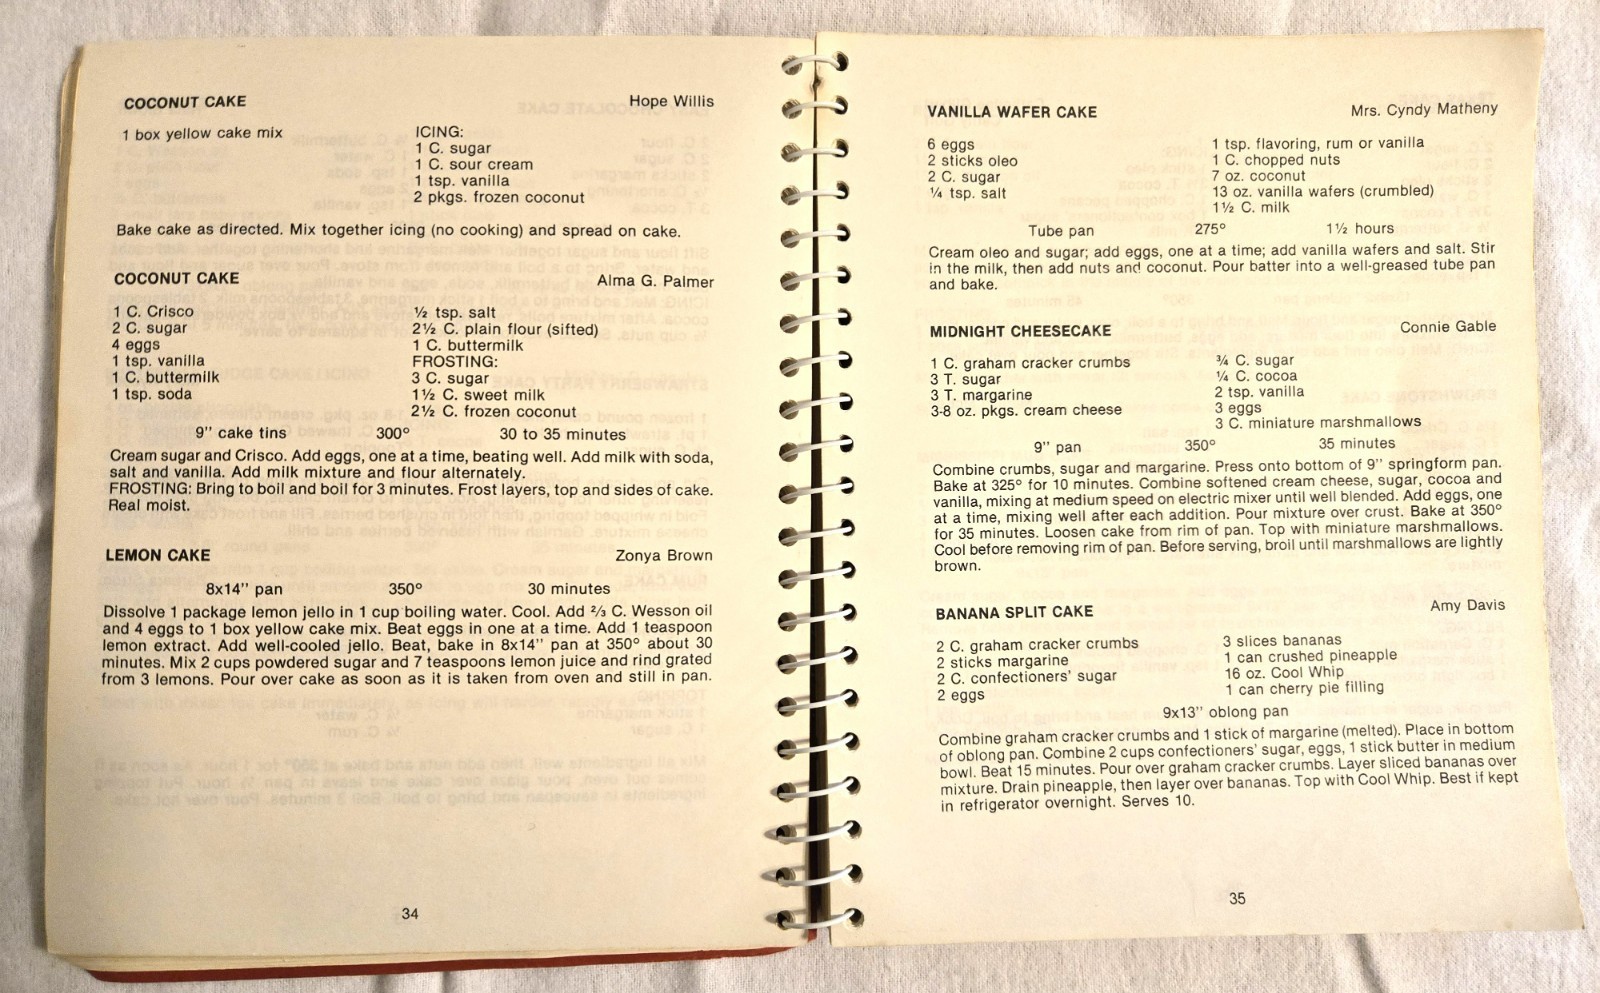 COCONUT CAKE Hope Willis
1 box yellow cake mix
ICING:
1 C. sugar
1 C. sour cream
1 tsp. vanilla
2 pkgs. frozen coconut
Bake cake as directed. Mix together icing (no cooking) and spread on cake.
COCONUT CAKE Alma G. Palmer
1 C. Crisco
2 C. sugar
4 eggs
1 tsp. vanilla
1 C. buttermilk
1 tsp. soda
½ tsp. salt
2½ C. plain flour (sifted)
1 C. buttermilk
FROSTING:
3 C. sugar
1½ C. sweet milk
2½ C. frozen coconut
9" cake tins 300° 30 to 35 minutes
Cream sugar and Crisco. Add eggs, one at a time, beating well. Add milk with soda,
salt and vanilla. Add milk mixture and flour alternately.
FROSTING: Bring to boil and boil for 3 minutes. Frost layers, top and sides of cake.
Real moist.
LEMON CAKE Zonya Brown
8x14" pan 350° 30 minutes
Dissolve 1 package lemon jello in 1 cup boiling water. Cool. Add ⅔ C. Wesson oil
and 4 eggs to 1 box yellow cake mix. Beat eggs in one at a time. Add 1 teaspoon
lemon extract. Add well-cooled jello. Beat, bake in 8x14" pan at 350° about 30
minutes. Mix 2 cups powdered sugar and 7 teaspoons lemon juice and rind grated
from 3 lemons. Pour over cake as soon as it is taken from oven and still in pan.
34
VANILLA WAFER CAKE Mrs. Cyndy Matheny
6 eggs
2 sticks oleo
2 C. sugar
¼ tsp. salt
1 tsp. flavoring, rum or vanilla
1 C. chopped nuts
7 oz. coconut
13 oz. vanilla wafers (crumbled)
1½ C. milk
Tube pan 275° 1½ hours
Cream oleo and sugar; add eggs, one at a time; add vanilla wafers and salt. Stir
in the milk, then add nuts and coconut. Pour batter into a well-greased tube pan
and bake.
MIDNIGHT CHEESECAKE Connie Gable
1 C. graham cracker crumbs
3 T. sugar
3 T. margarine
3-8 oz. pkgs. cream cheese
¾ C. sugar
¼ C. cocoa
2 tsp. vanilla
3 eggs
3 C. miniature marshmallows
9" pan 350° 35 minutes
Combine crumbs, sugar and margarine. Press onto bottom of 9" springform pan.
Bake at 325° for 10 minutes. Combine softened cream cheese, sugar, cocoa and
vanilla, mixing at medium speed on electric mixer until well blended. Add eggs, one
at a time, mixing well after each addition. Pour mixture over crust. Bake at 350°
for 35 minutes. Loosen cake from rim of pan. Top with miniature marshmallows.
Cool before removing rim of pan. Before serving, broil until marshmallows are lightly
brown.
BANANA SPLIT CAKE Amy Davis
2 C. graham cracker crumbs
2 sticks margarine
2 C. confectioners' sugar
2 eggs
3 slices bananas
1 can crushed pineapple
16 oz. Cool Whip
1 can cherry pie filling
9x13" oblong pan
Combine graham cracker crumbs and 1 stick of margarine (melted). Place in bottom
of oblong pan. Combine 2 cups confectioners' sugar, eggs, 1 stick butter in medium
bowl. Beat 15 minutes. Pour over graham cracker crumbs. Layer sliced bananas over
mixture. Drain pineapple, then layer over bananas. Top with Cool Whip. Best if kept
in refrigerator overnight. Serves 10.
35